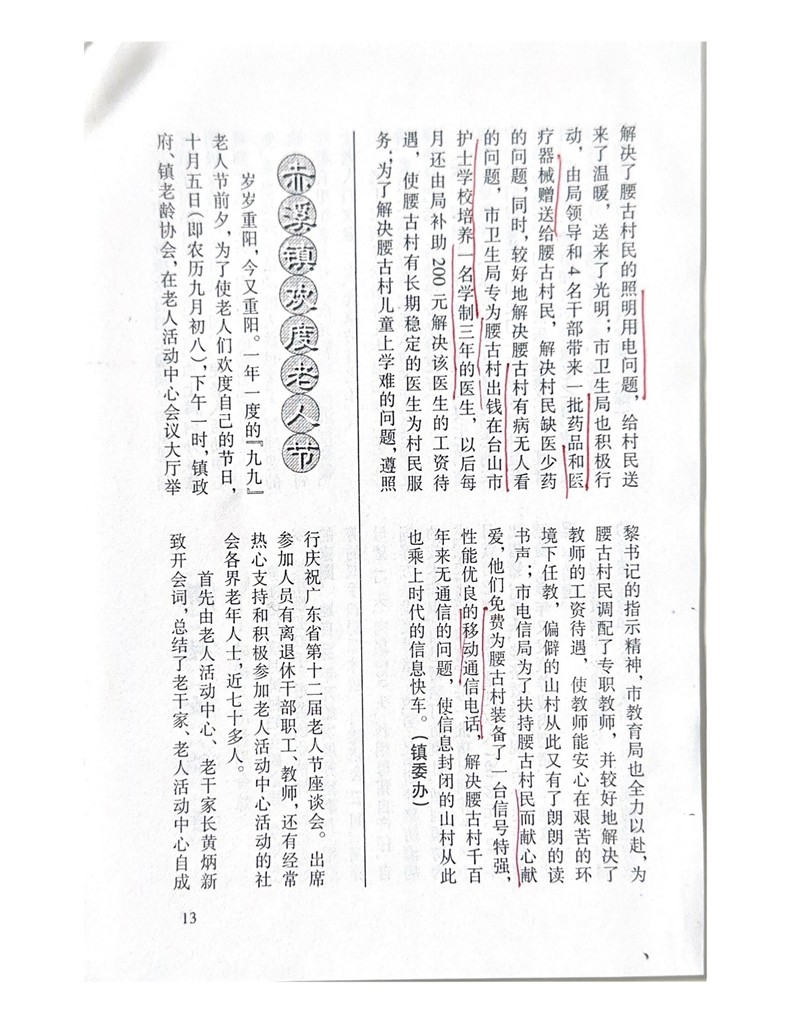 解决了腰古村民的照明用电问题，给村民送
来了温暖，送来了光明；市卫生局也积极行
动，由局领导和4名干部带来一批药品和医
疗器械赠送给腰古村民，解决村民缺医少药
的问题，同时，较好地解决腰古村有病无人看
的问题，市卫生局专为腰古村出钱在台山市
护士学校培养一名学制三年的医生，以后每
月还由局补助200元解决该医生的工资待
遇，使腰古村有长期稳定的医生为村民服
务；为了解决腰古村儿童上学难的问题，遵照
黎书记的指示精神，市教育局也全力以赴，为
腰古村民调配了专职教师，并较好地解决了
教师的工资待遇，使教师能安心在艰苦的环
境下任教，偏僻的山村从此又有了朗朗的读
书声；市电信局为了扶持腰古村民而献心献
爱，他们免费为腰古村装备了一台信号特强，
性能优良的移动通信电话，解决腰古村千百
年来无通信的问题，使信息封闭的山村从此
也乘上时代的信息快车。（镇委办）
赤溪镇欢度老人节
岁岁重阳，今又重阳。一年一度的『九九』
老人节前夕，为了使老人们欢度自己的节日，
十月五日（即农历九月初八），下午一时，镇政
府、镇老龄协会，在老人活动中心会议大厅举
行庆祝广东省第十二届老人节座谈会。出席
参加人员有离退休干部职工、教师，还有经常
热心支持和积极参加老人活动中心活动的社
会各界老年人士，近七十多人。
首先由老人活动中心、老干家长黄炳新
致开会词，总结了老干家、老人活动中心自成
13